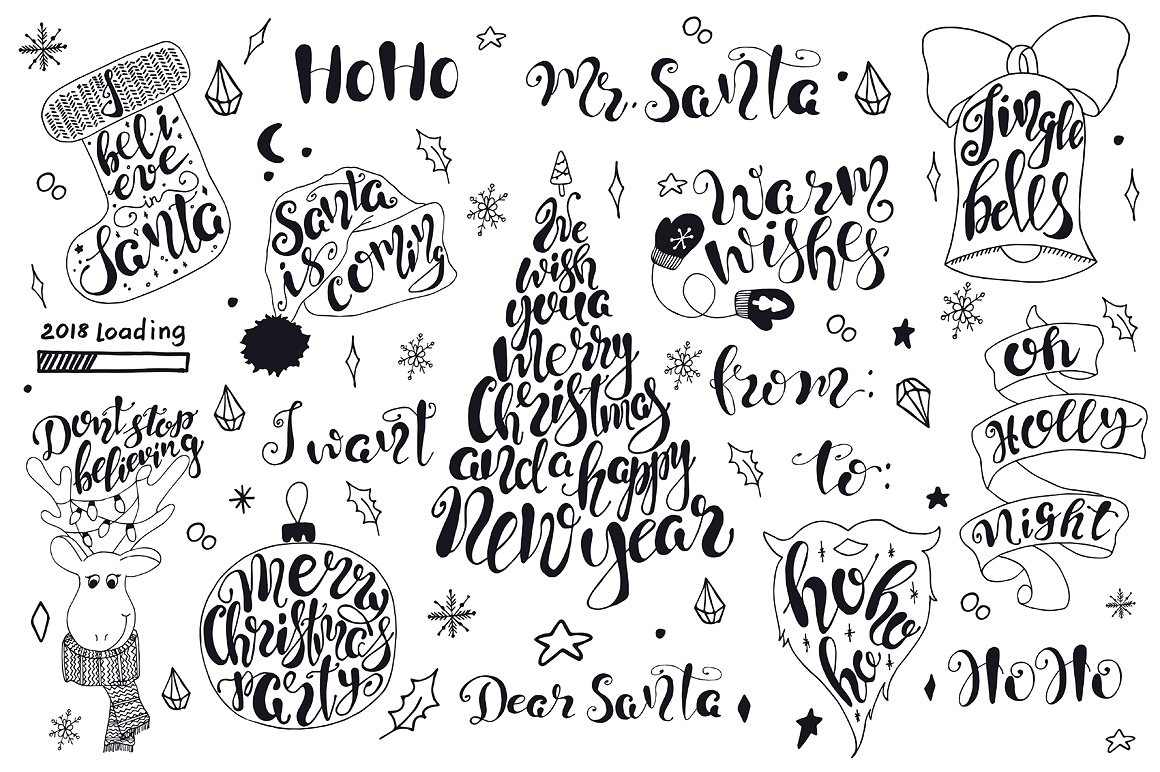 I
beli-
eve
in
Santa
HoHo
Mr. Santa
Jingle
bells
Santa
is coming
Warm
wishes
We
wish
you a
Merry
Christmas
and a happy
New year
2018 Loading
Dont stop
believing
I want
from:
to:
oh
Holly
Night
Merry
Christmas
party
hoho
ho
Dear Santa
HoHo